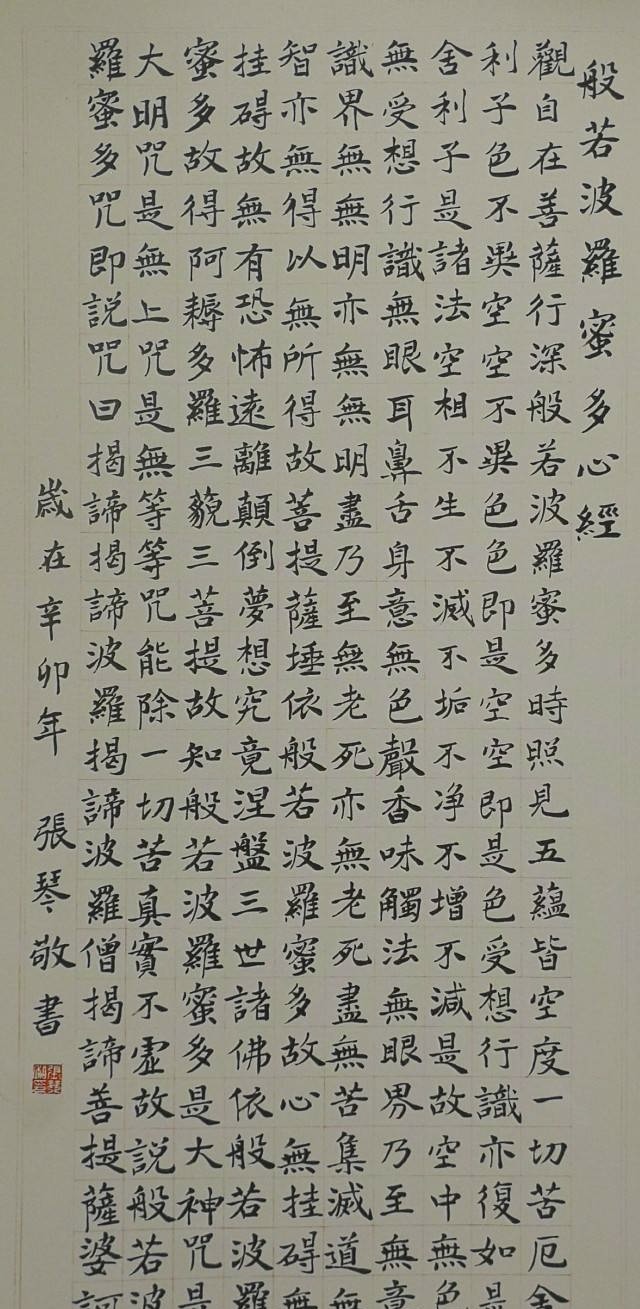 般若波羅蜜多心經
觀自在菩薩行深般若波羅蜜多時照見五蘊皆空度一切苦厄舍
利子色不異空空不異色色即是空空即是色受想行識亦復如是
舍利子是諸法空相不生不滅不垢不净不增不減是故空中無色
無受想行識無眼耳鼻舌身意無色聲香味觸法無眼界乃至無意
識界無無明亦無無明盡乃至無老死亦無老死盡無苦集滅道無
智亦無得以無所得故菩提薩埵依般若波羅蜜多故心無挂碍無
挂碍故無有恐怖遠離顛倒夢想究竟涅盤三世諸佛依般若波羅
蜜多故得阿耨多羅三藐三菩提故知般若波羅蜜多是大神咒是
大明咒是無上咒是無等等咒能除一切苦真實不虛故説般若波
羅蜜多咒即説咒曰揭諦揭諦波羅揭諦波羅僧揭諦菩提薩婆訶
歲在辛卯年 張琴敬書